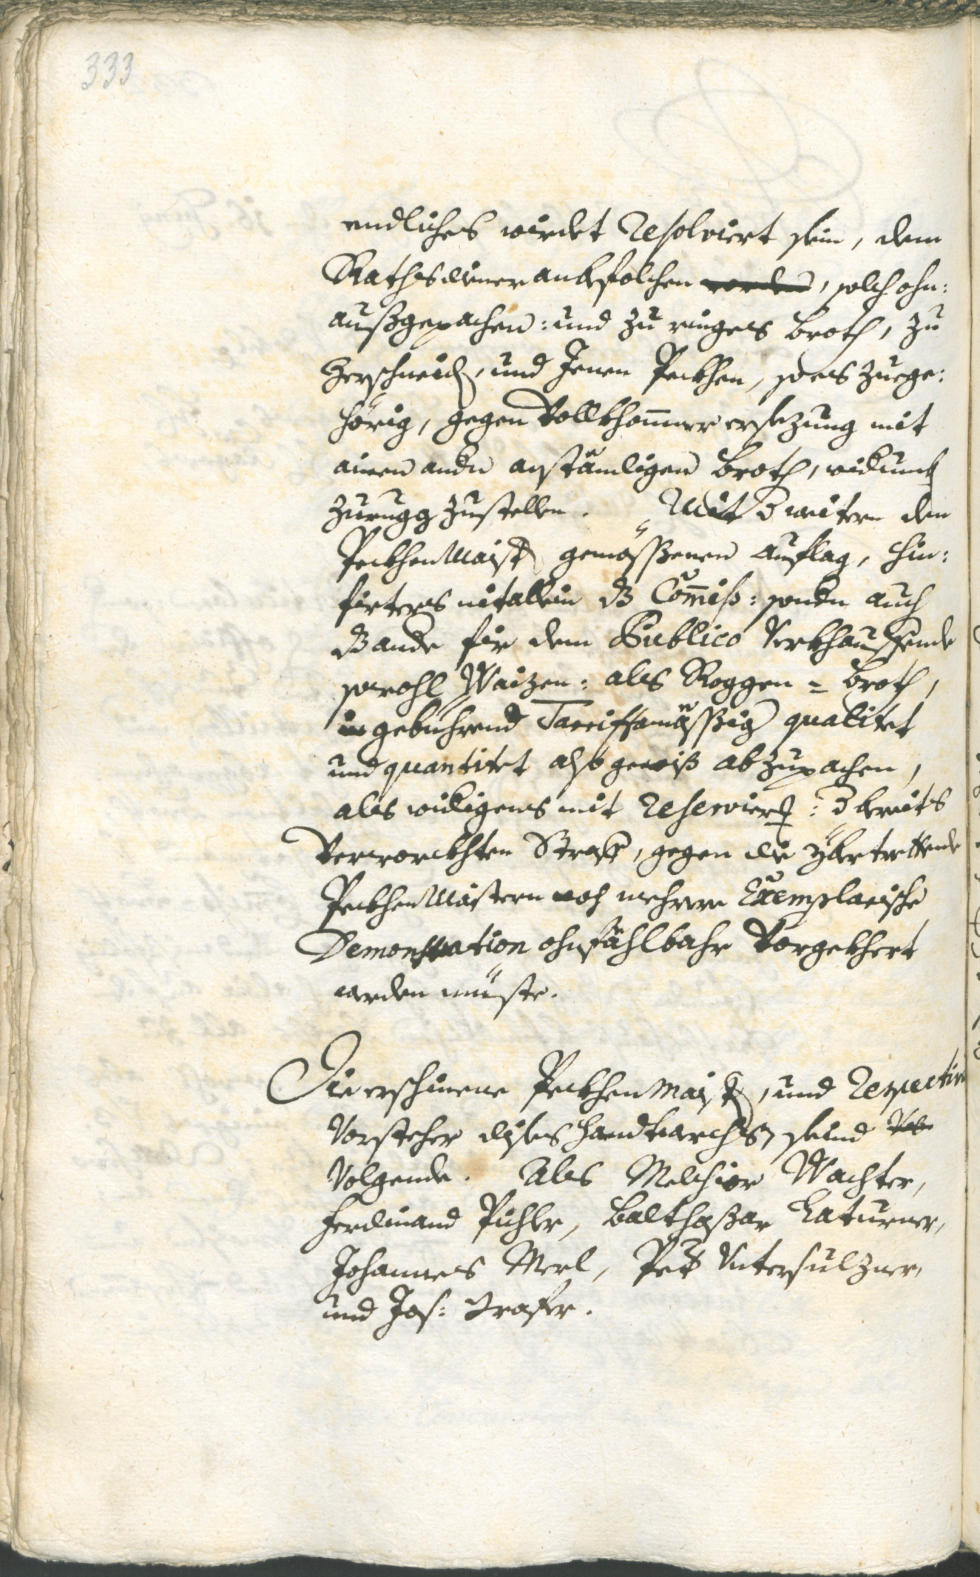 333
endliches wirdet Resolviert sein, dem
Rathsdiener anbefolchen worden, solch ohn:
außgepachen: und zu ringes Broth, zu
Zerschneiden, und Jenen Peckhen, so es zuege:
hörig, gegen Vollkhommner ersezung mit
ainen andern anstämligen Broth, widrumb
zurugg zustellen. Mit weitern den
PeckhenMaistern gemässenen Auflag, hin:
firters nit allein das Commiß: sondern auch
das ande für dem Publico Verkhauffende
sowohl Waizen: als Roggen = Broth,
in gebührend Tariffamässig qualitet
und quantitet also gewiß abzupachen,
als widrigens mit Reservierter: bereits
Verworckhten Straff, gegen die ybertrettende
PeckhenMaistern noch mehrere Exemplarische
Demonstration ohnfählbahr Vorgekhert
werden müeste.
Die erschinene PeckhenMaister, und Respective
Vorsteher dises Handtwerchs, seind
Volgende. Als Melchior Wachter,
Ferdinand Pichler, Balthasar Laturner,
Johannes Merl, Peter Untersulzner,
und Jos: Trafer.